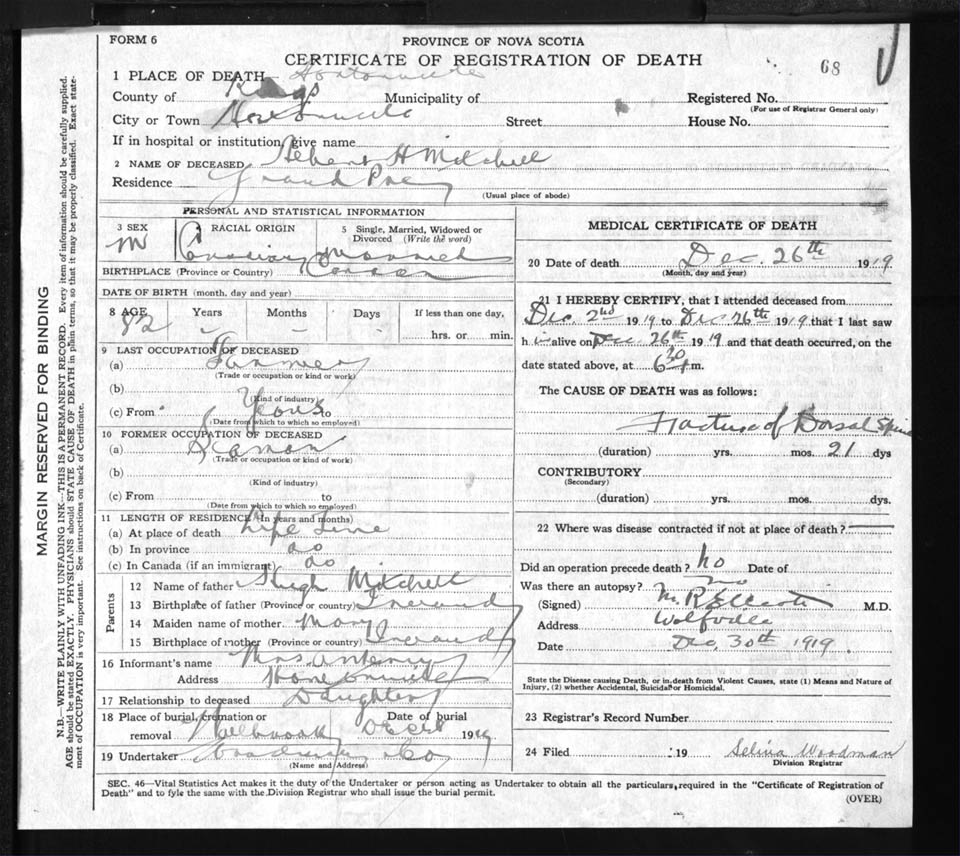 FORM 6
PROVINCE OF NOVA SCOTIA
CERTIFICATE OF REGISTRATION OF DEATH
68
1 PLACE OF DEATH
County of Kings Municipality of Registered No.
(For use of Registrar General only)
City or Town Street House No.
If in hospital or institution, give name
2 NAME OF DECEASED H Mitchell
Residence Grand Pre
(Usual place of abode)
PERSONAL AND STATISTICAL INFORMATION
3 SEX M
RACIAL ORIGIN Canadian
5 Single, Married, Widowed or Divorced (Write the word) Married
BIRTHPLACE (Province or Country)
DATE OF BIRTH (month, day and year)
8 AGE 82 Years Months Days If less than one day, hrs. or min.
9 LAST OCCUPATION OF DECEASED
(a) Farmer
(Trade or occupation or kind or work)
(b)
(Kind of industry)
(c) From Years to
(Date from which to which so employed)
10 FORMER OCCUPATION OF DECEASED
(a) Farmer
(Trade or occupation or kind of work)
(b)
(Kind of industry)
(c) From to
(Date from which to which so employed)
11 LENGTH OF RESIDENCE (In years and months)
(a) At place of death Life Time
(b) In province do
(c) In Canada (if an immigrant) do
Parents
12 Name of father Hugh Mitchell
13 Birthplace of father (Province or country) Ireland
14 Maiden name of mother Mary
15 Birthplace of mother (Province or country) Ireland
16 Informant's name Mrs
Address
17 Relationship to deceased Daughter
18 Place of burial, cremation or removal Date of burial 1919
19 Undertaker Woodman & Co
(Name and Address)
MEDICAL CERTIFICATE OF DEATH
20 Date of death Dec. 26th 1919
(Month, day and year)
21 I HEREBY CERTIFY, that I attended deceased from
Dec 2nd 1919 to Dec 26th 1919 that I last saw
him alive on Dec. 26th 1919 and that death occurred, on the
date stated above, at 6 30 p.m.
The CAUSE OF DEATH was as follows:
Fracture of Dorsal Spine
(duration) yrs. mos. 21 dys
CONTRIBUTORY
(Secondary)
(duration) yrs. mos. dys.
22 Where was disease contracted if not at place of death?
Did an operation precede death? no Date of
Was there an autopsy? no
(Signed) M. R Elliott M.D.
Address Wolfville
Date Dec, 30th 1919.
State the Disease causing Death, or in death from Violent Causes, state (1) Means and Nature of
Injury, (2) whether Accidental, Suicidal or Homicidal.
23 Registrar's Record Number
24 Filed 19 Selina Woodman
Division Registrar
SEC. 46—Vital Statistics Act makes it the duty of the Undertaker or person acting as Undertaker to obtain all the particulars required in the "Certificate of Registration of
Death" and to fyle the same with the Division Registrar who shall issue the burial permit.
(OVER)
MARGIN RESERVED FOR BINDING
N.B.—WRITE PLAINLY WITH UNFADING INK—THIS IS A PERMANENT RECORD. Every item of information should be carefully supplied.
AGE should be stated EXACTLY. PHYSICIANS should STATE CAUSE OF DEATH in plain terms, so that it may be properly classified. Exact state-
ment of OCCUPATION is very important. See instructions on back of Certificate.